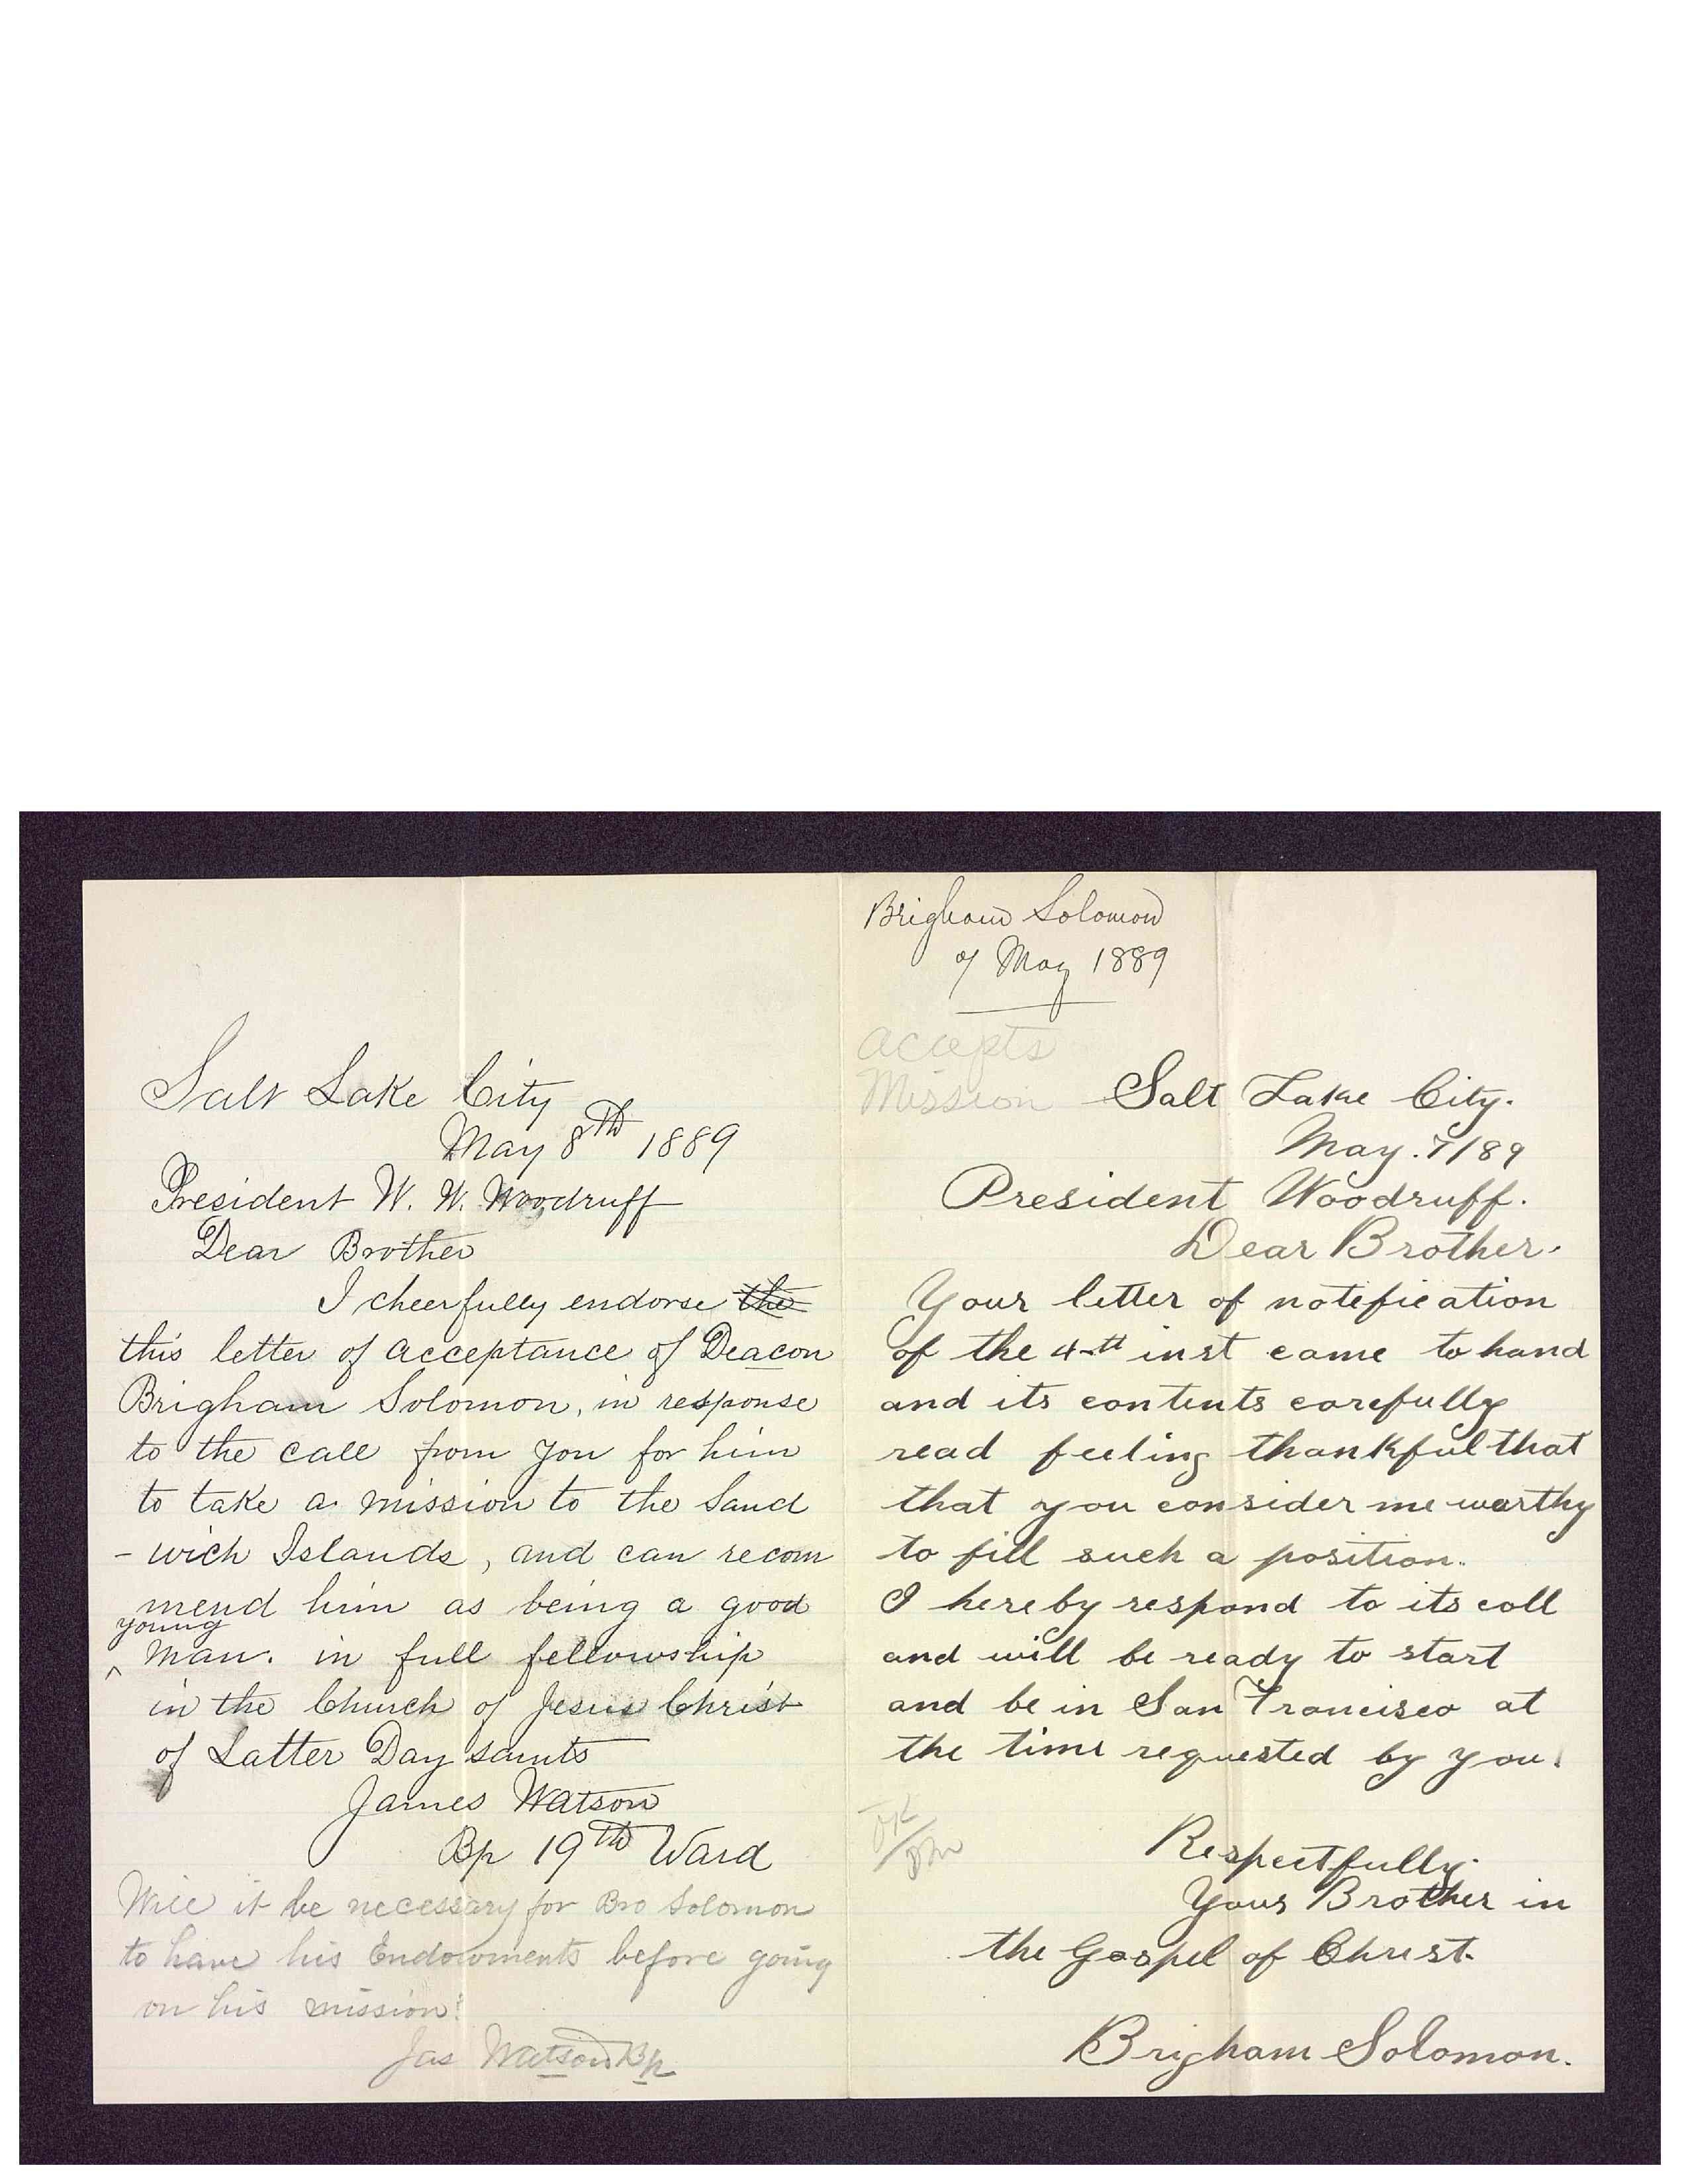 Salt Lake City
May 8th 1889
President W. W. Woodruff
Dear Brother
I cheerfully endorse the
this letter of acceptance of Deacon
Brigham Solomon, in response
to the call from you for him
to take a mission to the Sand
- wich Islands, and can recom
mend him as being a good
young
^ man. in full fellowship
in the Church of Jesus Christ
of Latter Day saints
James Watson
Bp 19th Ward
Will it be necessary for Bro Solomon
to have his Endowments before going
on his mission?
Jas Watson Bp
Brigham Solomon
7 May 1889
Accepts
Mission
Salt Lake City.
May. 7/89
President Woodruff.
Dear Brother.
Your letter of notefication
of the 4th inst came to hand
and its contents carefully
read feeling thankful that
that you consider me worthy
to fill such a position.
I hereby respond to its call
and will be ready to start
and be in San Francisco at
the time requested by you.
OK
Respectfully.
Your Brother in
the Gospel of Christ.
Brigham Solomon.